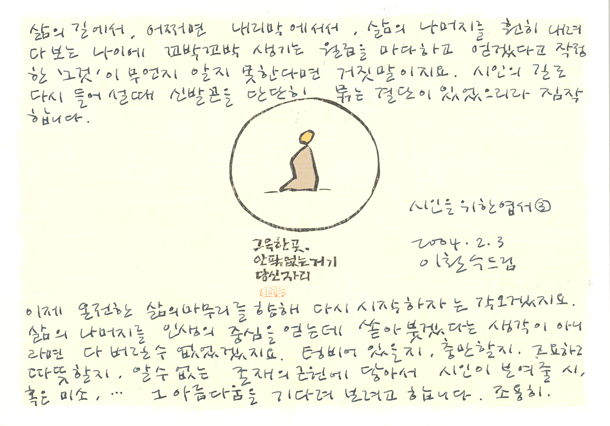 삶의 길에서, 어쩌면 내리막에서서, 삶의 나머지를 훤히 내려
다 보는 나이에 꼬박꼬박 생기는 월급을 마다하고 얻겠다고 작정
한 '그것'이 무언지 알지 못한다면 거짓말이지요. 시인의 길로
다시 들어 설때 신발끈을 단단히 묶는 결단이 있었으리라 짐작
합니다.
시인을 위한 엽서 ③
2004. 2. 3
이철수드림
고욕한 곳.
안팎없는 거기
당신자리
이제 온전한 삶의 마무리를 향해 다시 시작하자는 각오겠지요.
삶의 나머지를 인생의 중심을 얻는데 쏟아 붓겠다는 생각이 아니
라면 다 버릴 수 없었겠지요. 텅비어 있을지, 충만할지. 고요하고
따뜻할지. 알 수 없는 존재의 근원에 닿아서 시인이 보여줄 시,
혹은 미소, … 그 아름다움을 기다려 보려고 합니다. 조용히.